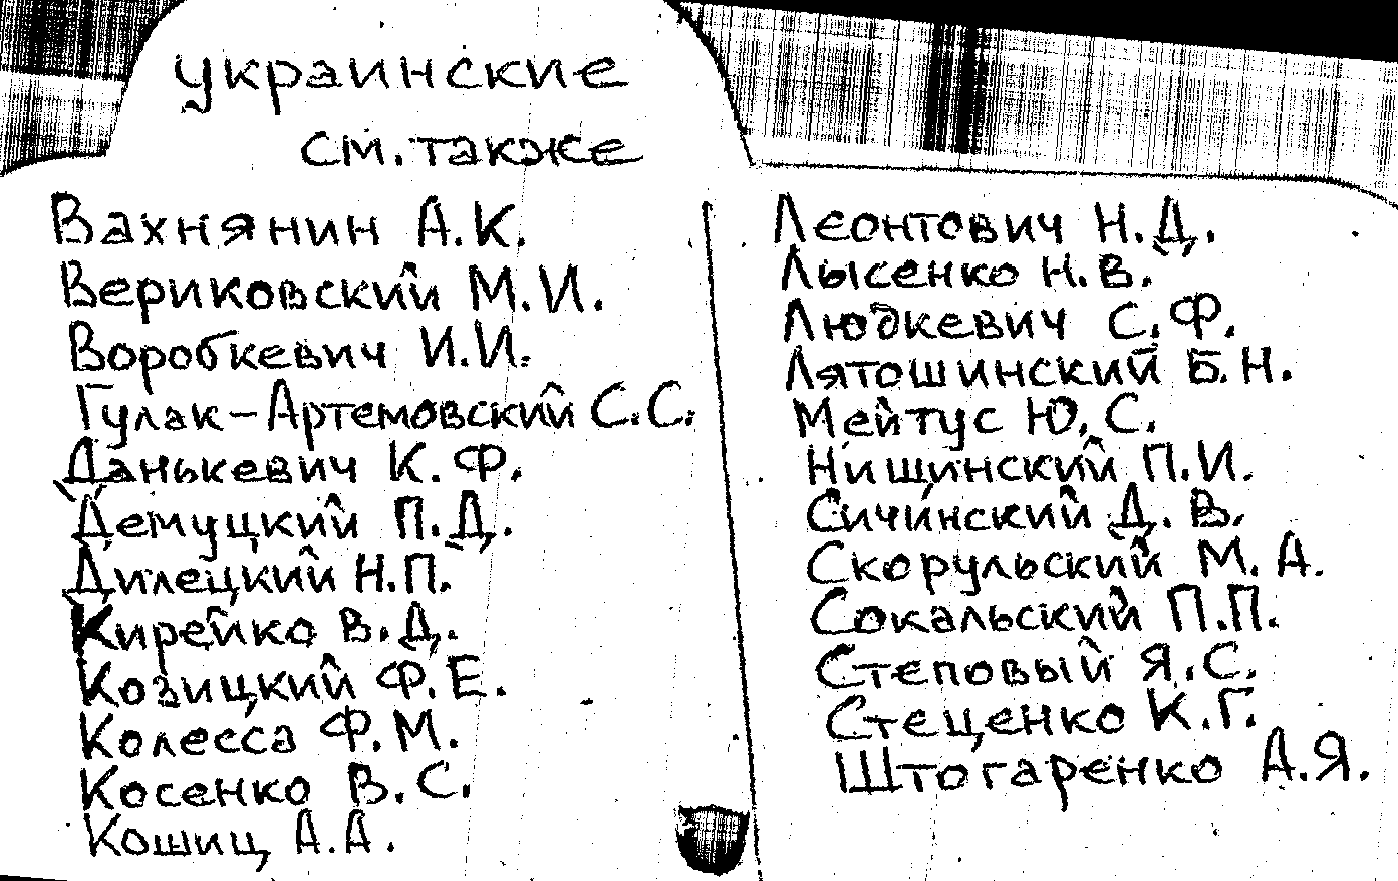 украинские
см. также
Вахнянин А.К.
Вериковский М.И.
Воробкевич И.И.
Гулак-Артемовский С.С.
Данькевич К.Ф.
Демуцкий П.Д.
Дилецкий Н.П.
Кирейко В.Д.
Козицкий Ф.Е.
Колесса Ф.М.
Косенко В.С.
Кошиц А.А.
Леонтович Н.Д.
Лысенко Н.В.
Людкевич С.Ф.
Лятошинский Б.Н.
Мейтус Ю.С.
Нищинский П.И.
Сичинский Д.В.
Скорульский М.А.
Сокальский П.П.
Степовый Я.С.
Стеценко К.Г.
Штогаренко А.Я.